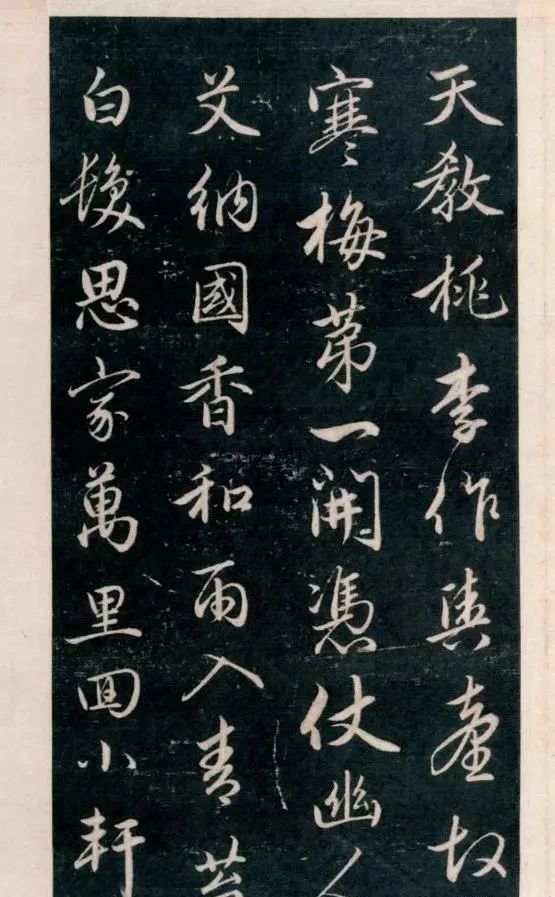 天教桃李作輿臺故
寒梅第一開憑仗幽人
艾納國香和雨入青苔
白髮思家萬里回小軒